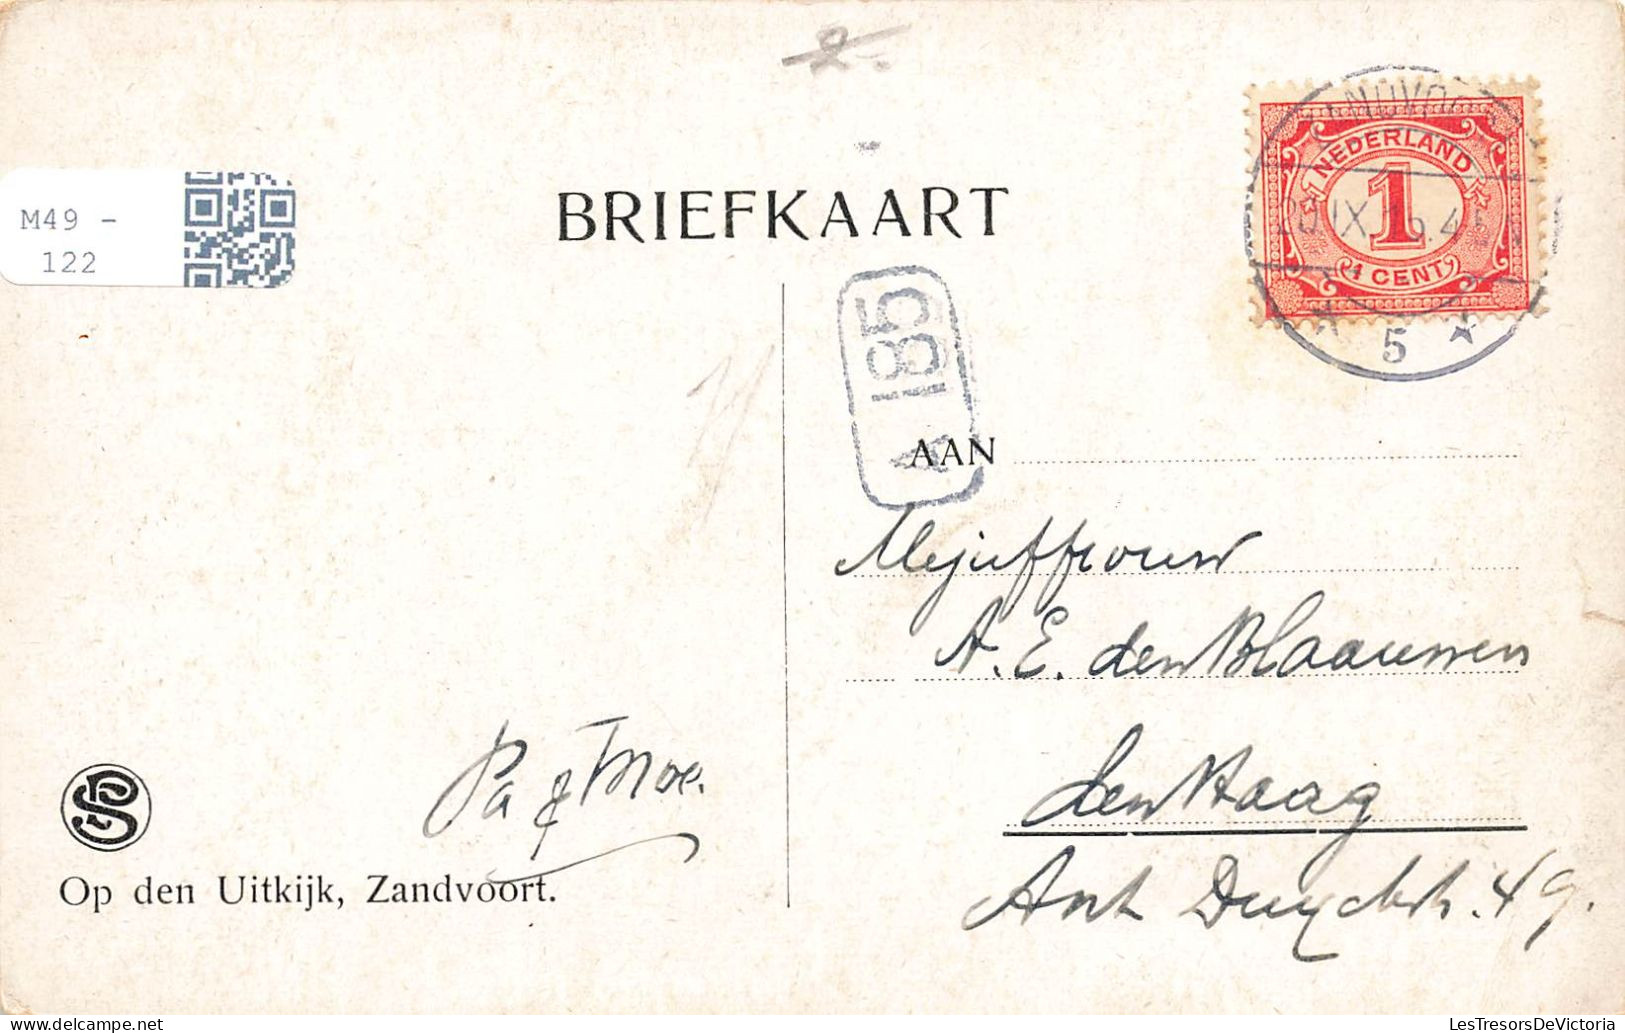 2.
M49 -
122
BRIEFKAART
NEDERLAND
1
1 CENT
5
A 185
AAN
Mejuffrouw
A. E. den Blaauwen
den Haag
Ant Duyckstr. 49.
Pa & Moe.
Op den Uitkijk, Zandvoort.
LesTresorsDeVictoria